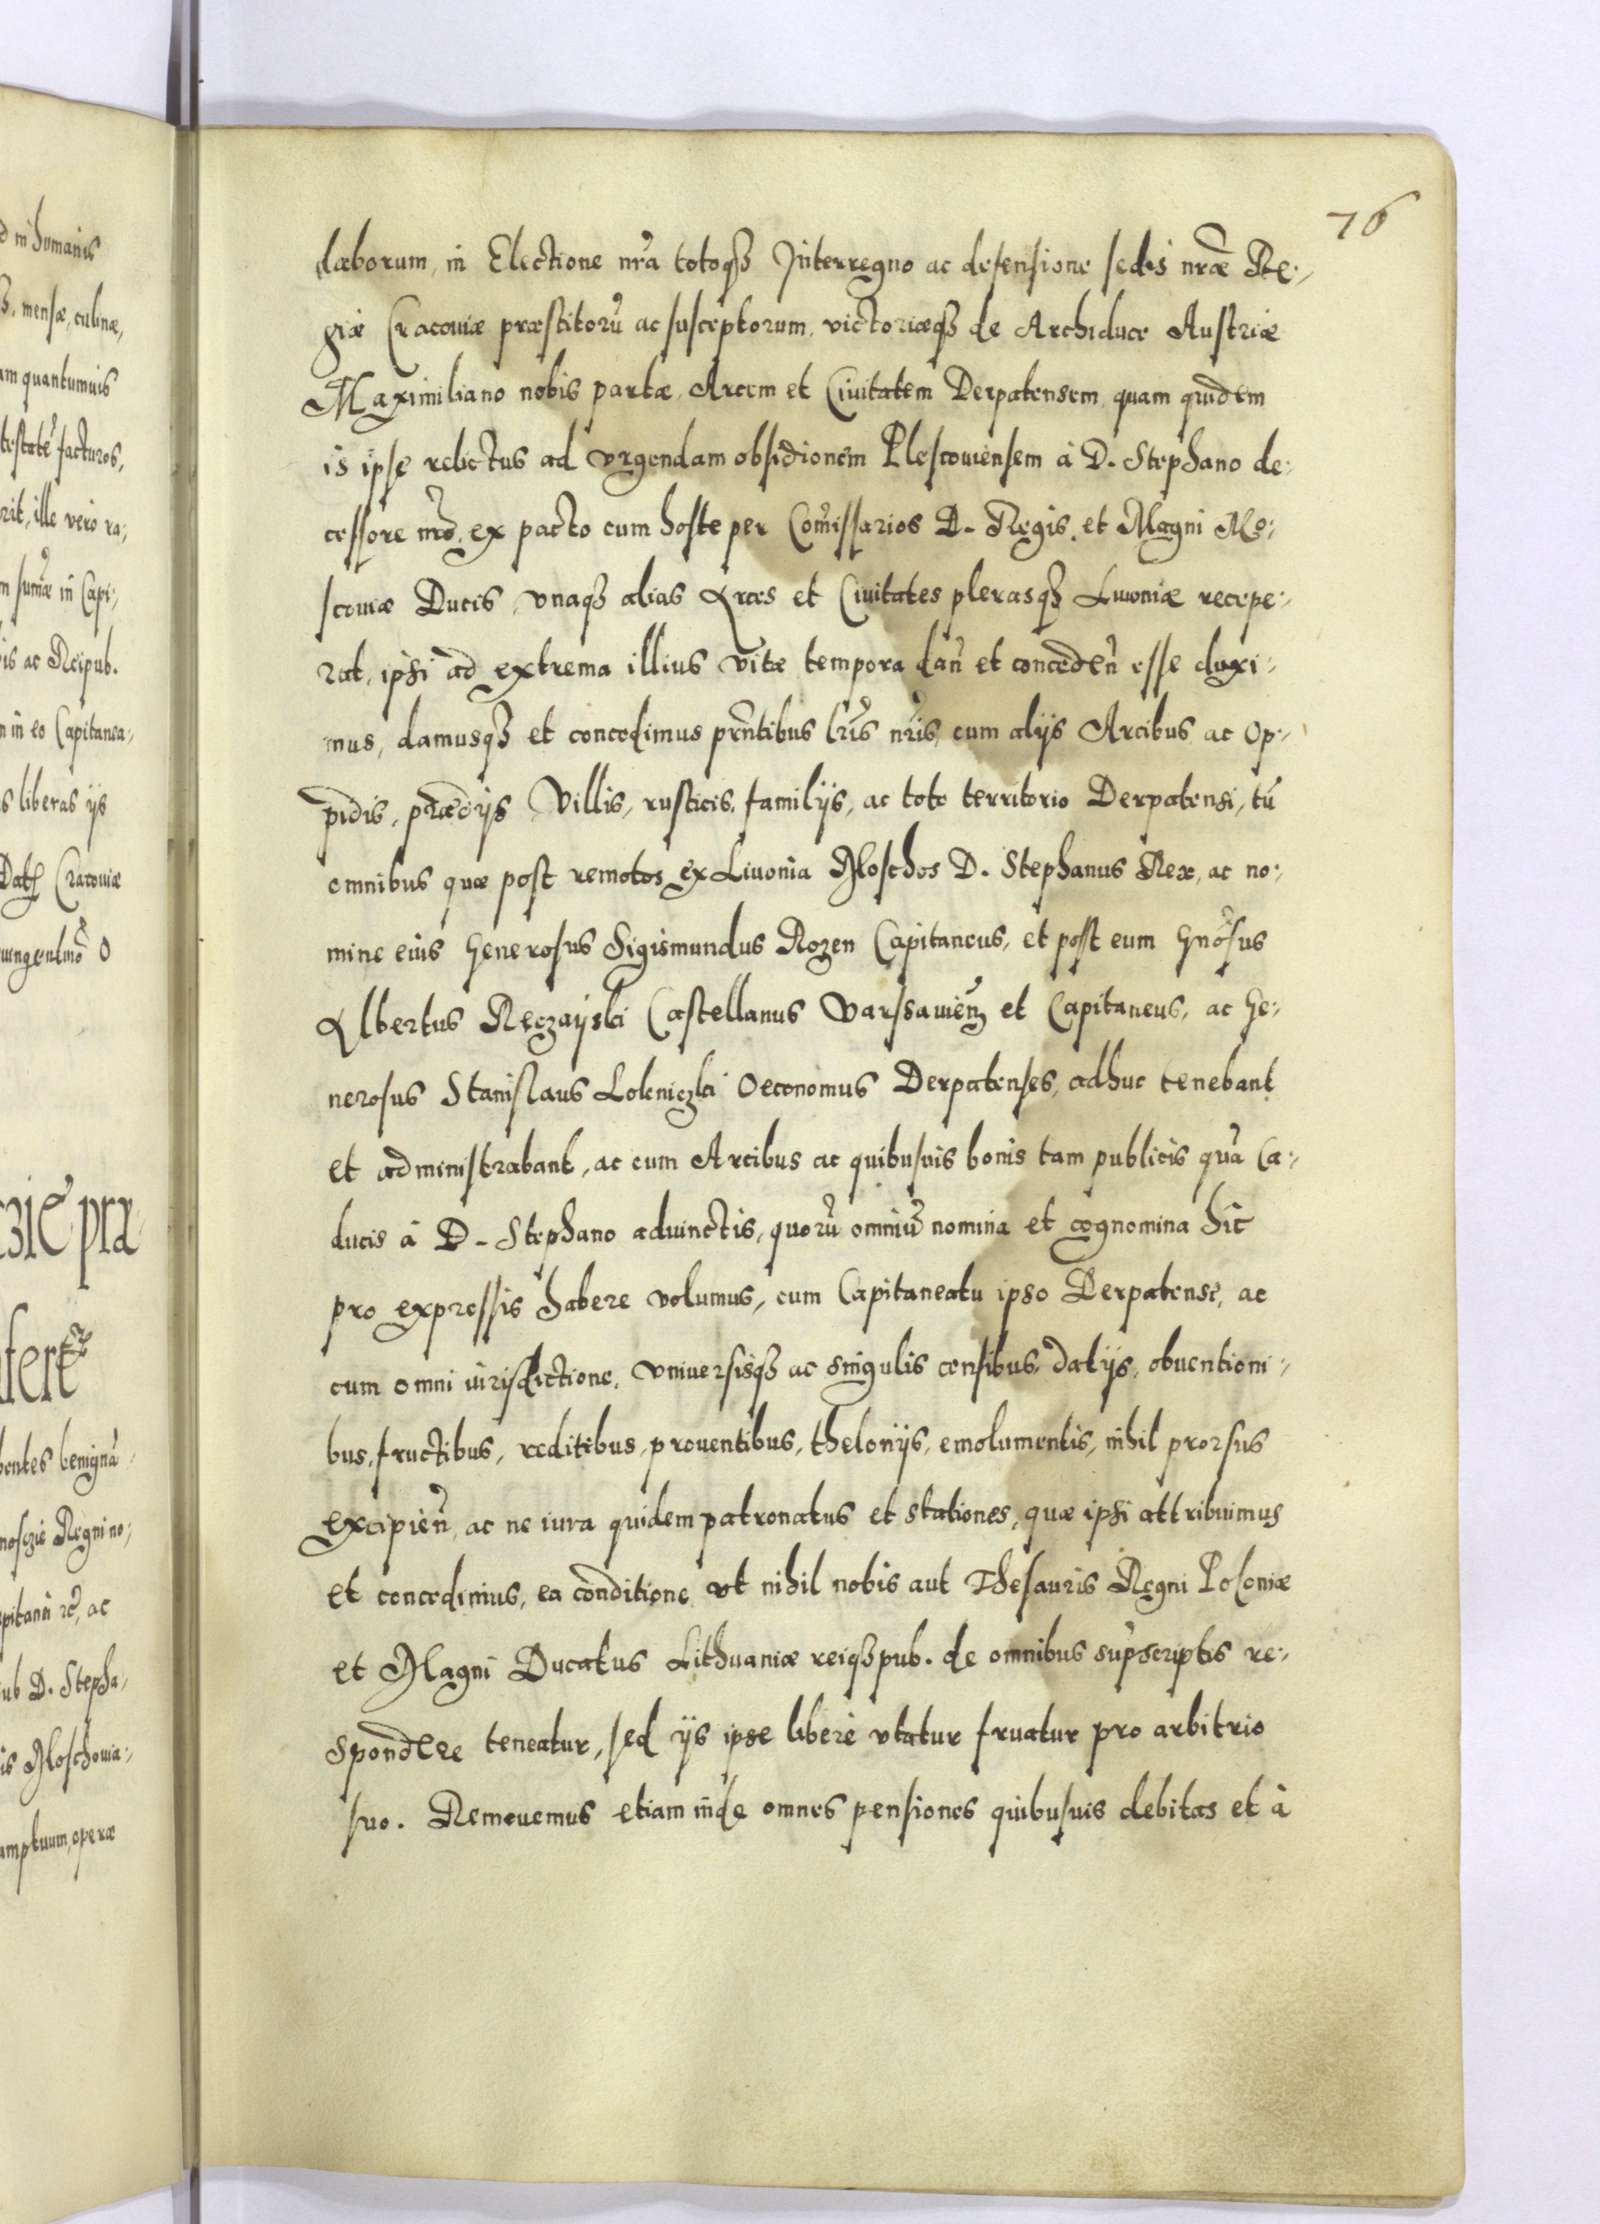 76
laborum, in Electione nr̃a totoqȝ Interregno ac defensione sedis nr̃æ Re-
giæ Cracouiæ præstitorũ ac susceptorum, victoriæqȝ de Archiduce Austriæ
Maximiliano nobis partæ, Arcem et Ciuitatem Derpatensem, quam quidem
is ipse relictus ad vrgendam obsidionem Plescouiensem à D. Stephano de-
cessore nr̃o, ex pacto cum hoste per Com̃issarios D. Regis, et Magni Mo-
scouiæ Ducis, vnaqȝ alias Arces et Ciuitates plerasqȝ Liuoniæ recepe-
rat, ipsi ad extrema illius vitæ tempora dañ et concedeñ esse duxi-
mus, damusqȝ et concedimus prñtibus lr̃is nr̃is, cum alijs Arcibus ac Op-
pidis, prædijs Villis, rusticis, familijs, ac toto territorio Derpatensi, tũ
omnibus quæ post remotos ex Liuonia Moschos D. Stephanus Rex, ac no-
mine eius Generosus Sigismundus Rozen Capitaneus, et post eum Gnõsus
Albertus Ręczayski Castellanus Varsauieñ et Capitaneus, ac Ge-
nerosus Stanislaus Lokniczki Oeconomus Derpatenses, adhuc tenebant
et administrabant, ac cum Arcibus ac quibusuis bonis tam publicis quã Ca-
ducis à D. Stephano aduinctis, quorũ omniũ nomina et cognomina hîc
pro expressis habere volumus, cum Capitaneatu ipso Derpatensi, ac
cum omni iurisdictione, vniuersisqȝ ac singulis censibus, datijs, obuentioni-
bus, fructibus, reditibus, prouentibus, thelonijs, emolumentis, nihil prorsus
excipieñ, ac ne iura quidem patronatus et stationes, quæ ipsi attribuimus
et concedimus, ea conditione, vt nihil nobis aut Thesauris Regni Poloniæ
et Magni Ducatus Lithuaniæ reiqȝpub. de omnibus sup̃scriptis re-
spondere teneatur, sed ijs ipse liberè vtatur fruatur pro arbitrio
suo. Remouemus etiam inde omnes pensiones quibusuis debitas et à